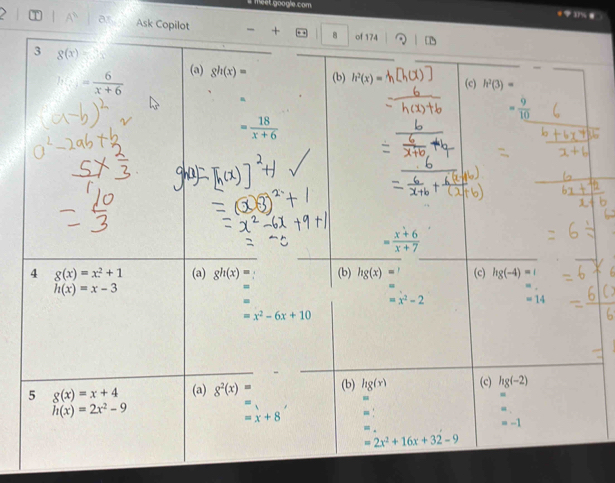 meet.google.com
Ask Copilot
8 of 174
37%
3 g(x)
= 6/(x + 6)
(a) gh(x) =
=
= 18/(x + 6)
(b) h²(x) = h[h(x)]
= 6/(h(x)+6)
= 6/(6/(x+6) + 6)
= 6/(6/(x+6) + (x+6)/(x+6))
= (x + 6)/(x + 7)
(c) h²(3) =
= 9/10
(a-b)²
a² - 2ab + b
5 × 2/3
= 10/3
gh(x) = [h(x)]² + 1 ✓
= (x 3)² + 1
= x² - 6x + 9 + 1
6
6 + 6x + 36
x + 6
=
6
6x +
x + 6
= 6 ÷
= 6 ×
= 6(
4 g(x) = x² + 1
h(x) = x − 3
(a) gh(x) =
=
=
= x² − 6x + 10
(b) hg(x) =
=
= x² − 2
(c) hg(−4) =
=
= 14
5 g(x) = x + 4
h(x) = 2x² − 9
(a) g²(x) =
=
= x + 8
(b) hg(x)
=
=
=
= 2x² + 16x + 32 − 9
(c) hg(−2)
=
=
= −1